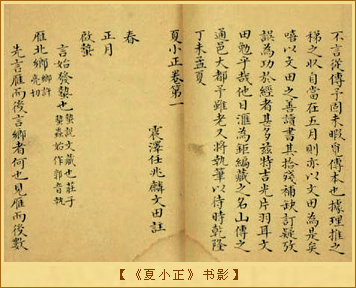 不言從傳予固未暇專傳本也據理推之
梯之收自當在五月則亦以文田為是矣
嘻以文田之善讀書其拾殘補缺訂疑攷
誤為功於經者甚多茲特吉光片羽耳文
田勉乎哉他日滙為鉅編藏之名山傳之
通邑大都予雖老又將執筆以待時乾隆
丁未孟夏
夏小正卷第一
震澤任兆麟文田註
春
正月
啟蟄
言始發蟄也蟄說文藏也莊子蟄蟲始作郭音執
雁北鄉鄉許亮切
先言雁而後言鄉者何也見雁而後數
【《夏小正》书影】